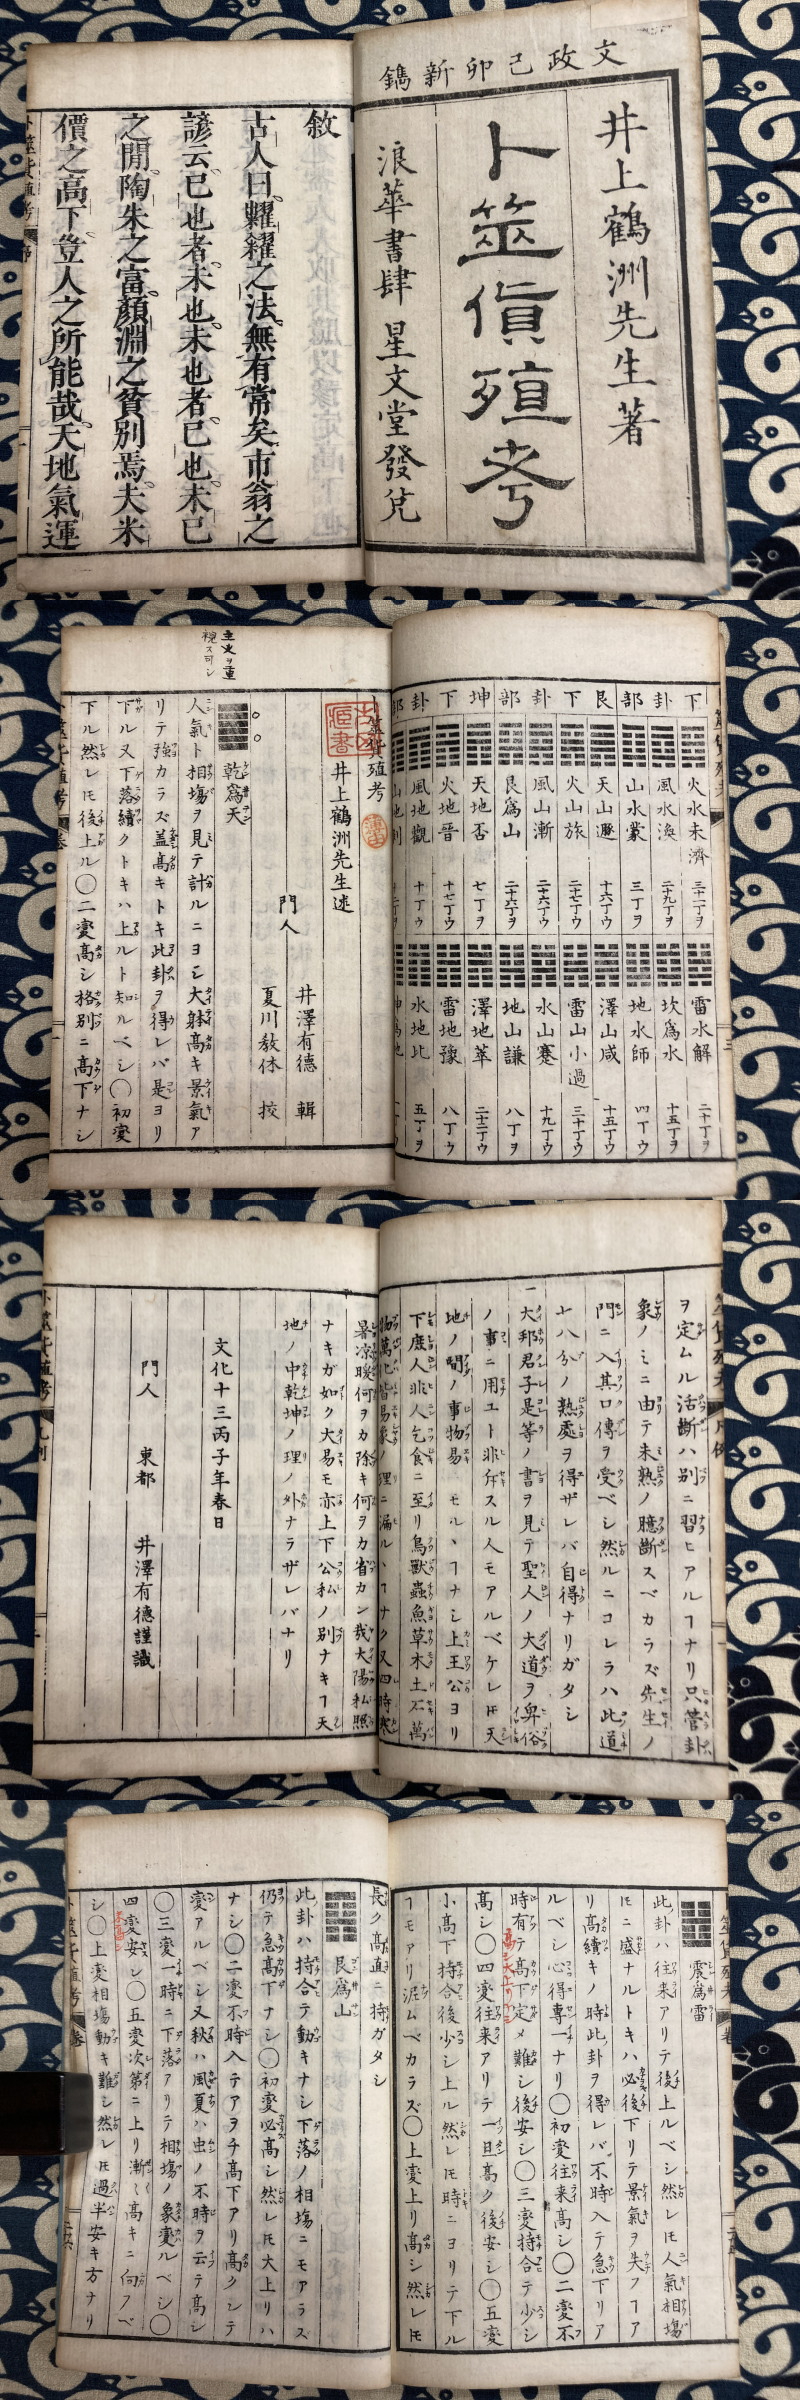 文政己卯新鐫
井上鶴洲先生著
卜筮貨殖考
浪華書肆 星文堂發兌
敘
古人曰糶糴之法無有常矣市翁之
諺云已也者未也未也者已也未已
之間陶朱之富顏淵之貧別焉夫米
價之高下豈人之所能哉天地氣運
下卦部艮下卦部坤下卦部
火水未濟 三十一丁ヲ
風水渙 二十九丁ヲ
山水蒙 三丁ヲ
天山遯 十六丁ウ
火山旅 二十七丁ウ
風山漸 二十六丁ウ
艮爲山 二十六丁ヲ
天地否 七丁ヲ
火地晉 十七丁ウ
風地觀 十丁ウ
雷水解 二十丁ヲ
坎爲水 十五丁ヲ
地水師 四丁ウ
澤山咸 十五丁ウ
雷山小過 三十丁ウ
水山蹇 十九丁ウ
地山謙 八丁ヲ
澤地萃 二十二丁ウ
雷地豫 八丁ウ
水地比 五丁ヲ
主爻ヲ重
視ス可シ
卜筮貨殖考
井上鶴洲先生述
門人 井澤有德 輯
夏川敎休 挍
乾爲天
人氣ト相塲ヲ見テ計ルニヨシ大躰高キ景氣ア
リテ強カラズ蓋高キトキ此卦ヲ得レバ是ヨリ
下ル又下落續クトキハ上ルト知ルベシ〇初変
下ル然レ𪜈後上ル〇二変高シ格別ニ高下ナシ
ヲ定ムル活斷ハ別ニ習ヒアルヿナリ只管卦
象ノミニ由テ未熟ノ臆斷スベカラズ先生ノ
門ニ入其口傳ヲ受ベシ然ルニコレラハ此道
十八分ノ熟處ヲ得ザレバ自得ナリガタシ
一大邦君子是等ノ書ヲ見テ聖人ノ大道ヲ卑俗
ノ事ニ用ユト非斥スル人モアルベケレ𪜈天
地ノ間ノ事物易ニモルヽヿナシ上王公ヨリ
下庶人非人乞食ニ至リ鳥獸蟲魚草木土石萬
物萬化皆易象ノ理ニ漏ルヽヿナク又四時寒
暑凉暖何ヲカ除キ何ヲカ省カン哉大陽私照
ナキガ如ク大易モ亦上下公私ノ別ナキヿ天
地ノ中乾坤ノ理ノ外ナラザレバナリ
文化十三丙子年春日
門人 東都 井澤有德謹識
震爲雷
此卦ハ往来アリテ後上ルベシ然レ𪜈人氣相塲
𪜈ニ盛ナルトキハ必後下リテ景氣ヲ失フヿア
リ高續キノ時此卦ヲ得レバ不時入テ急下リア
ルベシ心得專一ナリ〇初変往来高シ〇二変不
時有テ高下定メ難シ後安シ〇三変持合テ少シ
高シ〇四変往来アリテ一旦高ク後安シ〇五変
小高下持合後少シ上ル然レ𪜈時ニヨリテ下ル
ヿモアリ泥ムベカラズ〇上変上リ高シ然レ𪜈
長ク高直ニ持ガタシ
艮爲山
此卦ハ持合テ動キナシ下落ノ相塲ニモアラズ
仍テ急高下ナシ〇初変必高シ然レ𪜈大上リハ
ナシ〇二変不時入テアヲチ高下アリ高クシテ
変アルベシ又秋ハ風夏ハ虫ノ不時ヲ云テ高シ
〇三変一時ニ下落アリテ相塲ノ象変ルベシ〇
四変安シ〇五変次第ニ上リ漸々高キニ向フベ
シ〇上変相塲動キ難シ然レ𪜈過半安キ方ナリ